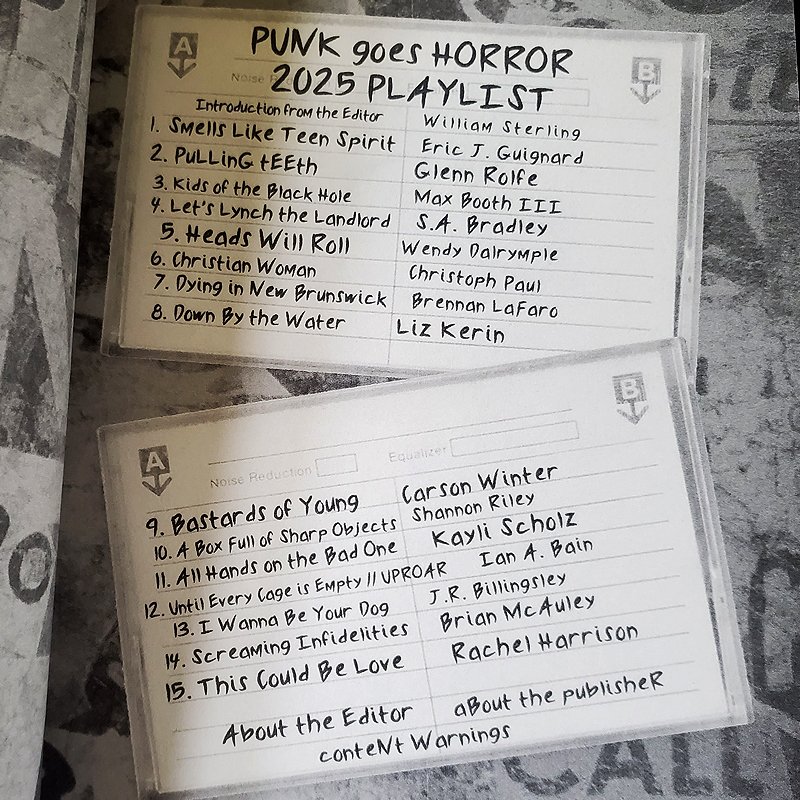 A
B
PUNK goes HORROR
2025 PLAYLIST
Introduction from the Editor William Sterling
1. Smells Like Teen Spirit Eric J. Guignard
2. PuLLinG tEEth Glenn Rolfe
3. Kids of the Black Hole Max Booth III
4. Let's Lynch the Landlord S.A. Bradley
5. Heads Will Roll Wendy Dalrymple
6. Christian Woman Christoph Paul
7. Dying in New Brunswick Brennan LaFaro
8. Down By the Water Liz Kerin
A
B
Noise Reduction Equalizer
9. Bastards of Young Carson Winter
10. A Box Full of Sharp Objects Shannon Riley
11. All Hands on the Bad One Kayli Scholz
12. Until Every Cage is Empty // UPROAR Ian A. Bain
13. I Wanna Be Your Dog J.R. Billingsley
14. Screaming Infidelities Brian McAuley
15. This Could Be Love Rachel Harrison
About the Editor aBout the publisheR
conteNt Warnings
CALL